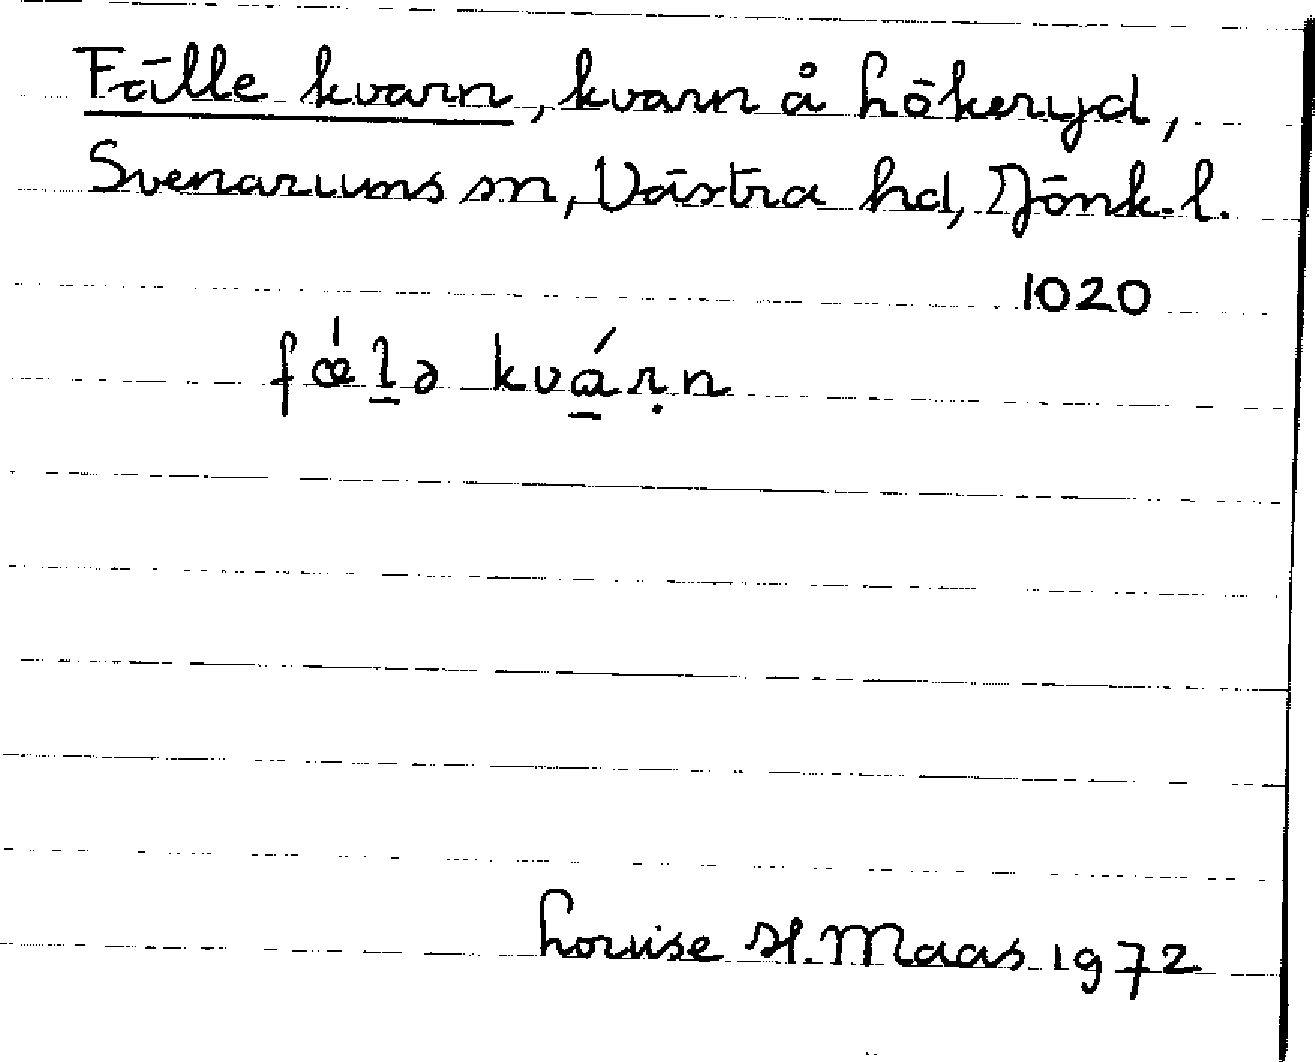 Fälle kvarn, kvarn å Lökeryd,
Svenarums sn, Västra hd, Jönk. l.
1020
fǽl̠ə kvá̠ṛn
Louise H. Maas 1972